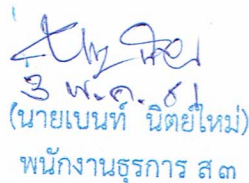 ๓ พ.ค. ๖๑
(นายเบนท์ นิตย์ใหม่)
พนักงานธุรการ ส ๓